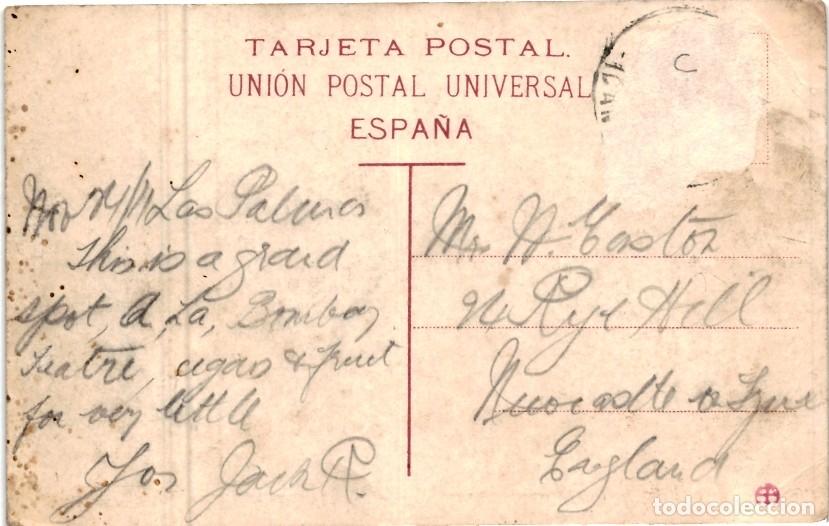 TARJETA POSTAL.
UNIÓN POSTAL UNIVERSAL
ESPAÑA
C
Nov 24/11 Las Palmas
This is a grand
spot, A, La, Bombay
Teatre, cigars & fruit
for very little
Jack R.
H. Easton
Rye Hill
Newcastle
England
todocoleccion